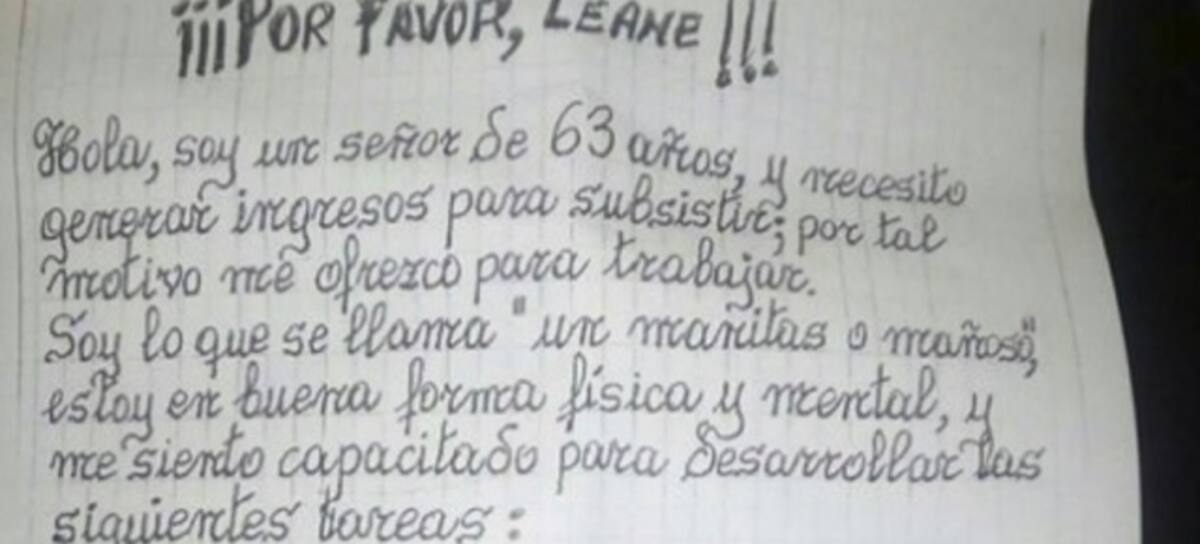 ¡¡¡POR FAVOR, LEANE!!!
Hola, soy un señor de 63 años, y necesito
generar ingresos para subsistir; por tal
motivo me ofrezco para trabajar.
Soy lo que se llama "un mañitas o mañoso",
estoy en buena forma física y mental, y
me siento capacitado para desarrollar las
siguientes tareas: